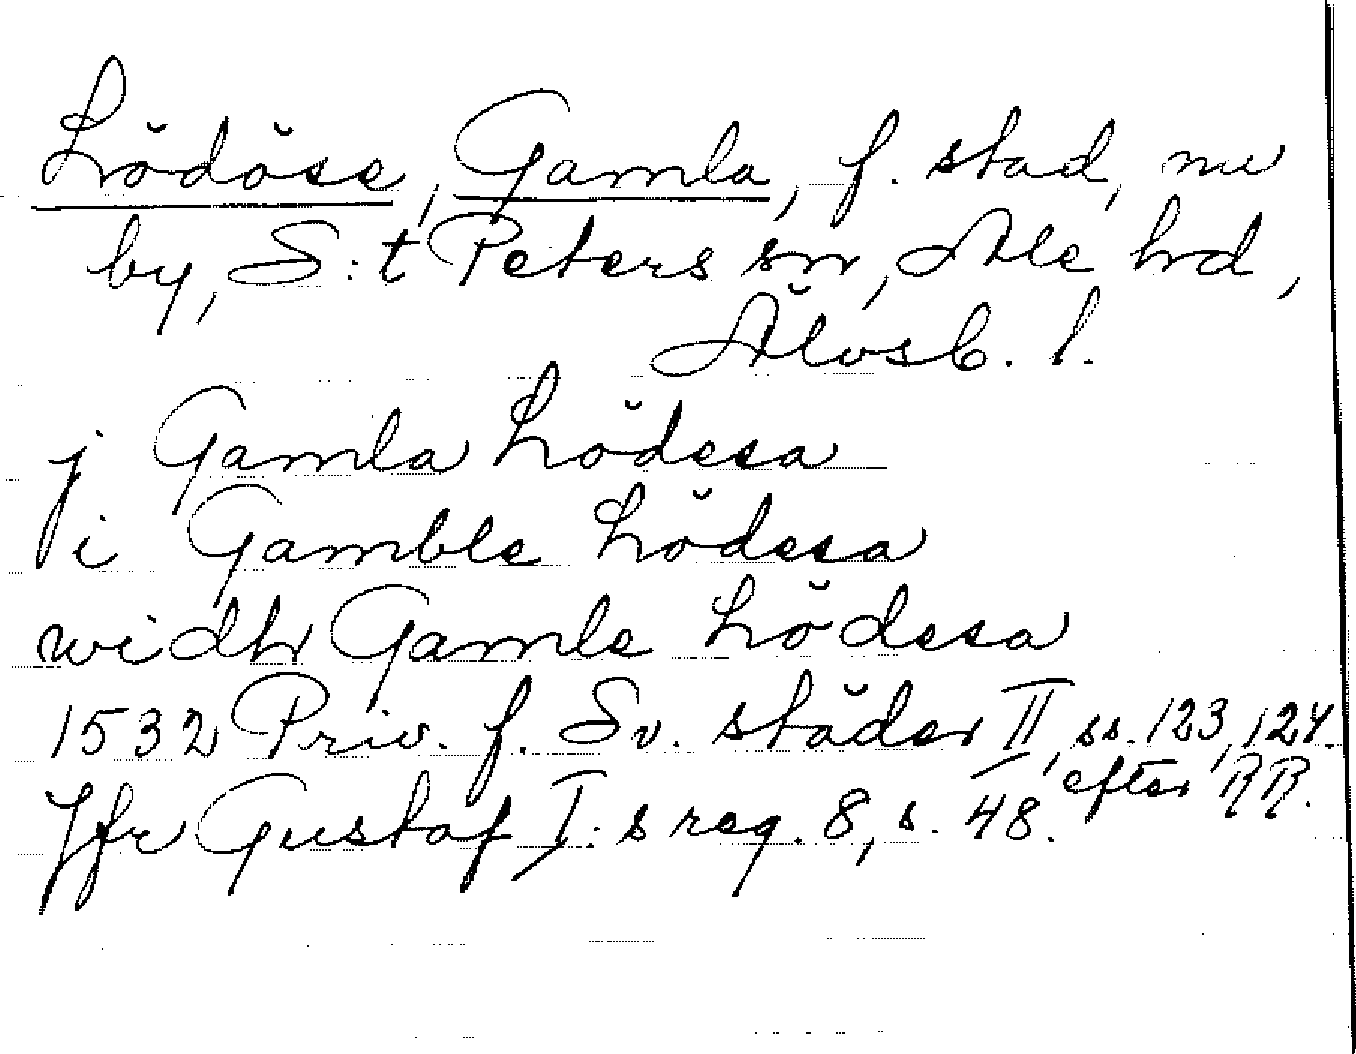 Lödöse, Gamla, f. stad, nu
by, S:t Peters sn, Ale hd,
Älvsb. l.
j Gamla Lödesa
i Gamble Lödesa
widhr Gamle Lödesa
1532 Priv. f. Sv. städer II, ss. 123, 124.
efter RR.
Jfr Gustaf I:s reg. 8, s. 48.